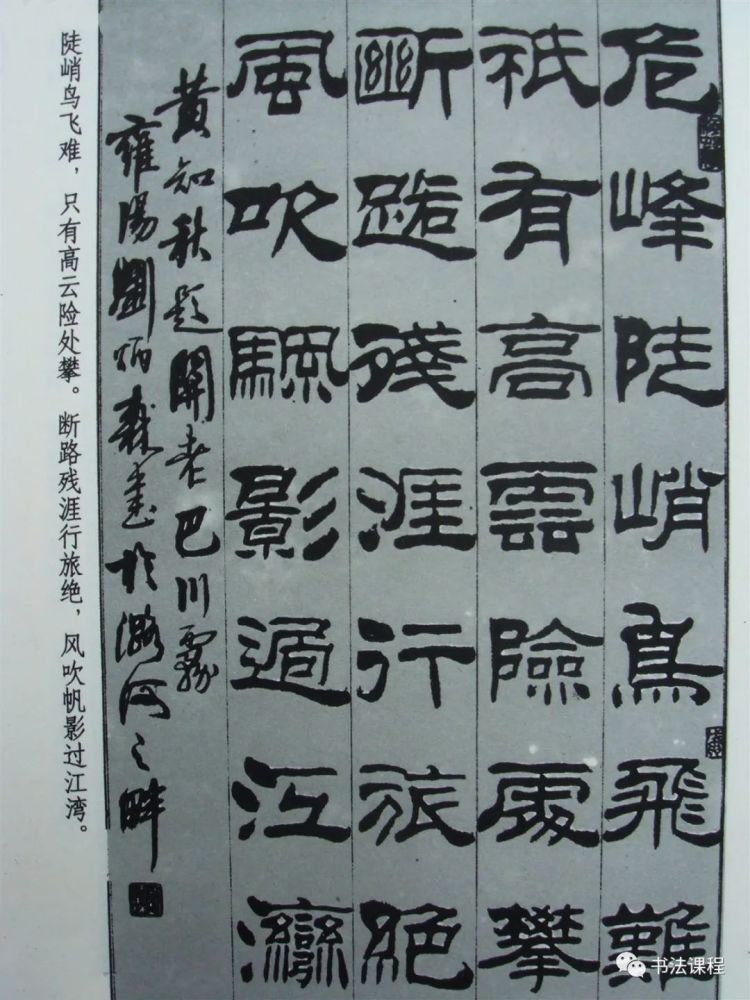 危峰陡峭鳥飛難
祇有高雲險處攀
斷路殘涯行旅絕
風吹颿影過江灣
黄知秋題關老巴川霧
雍陽劉炳森書於潞河之畔
陡峭鸟飞难，只有高云险处攀。断路残涯行旅绝，风吹帆影过江湾。
书法课程